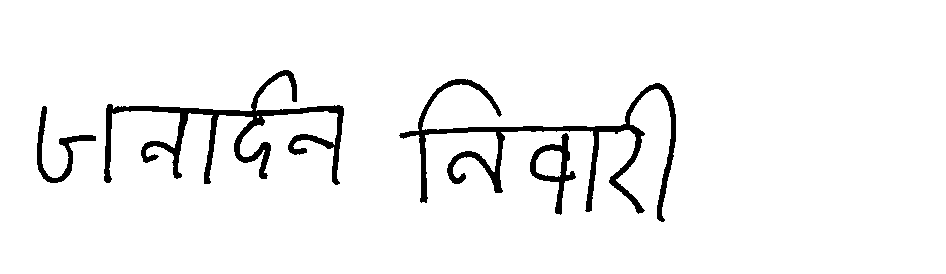 जनार्दन निवारी